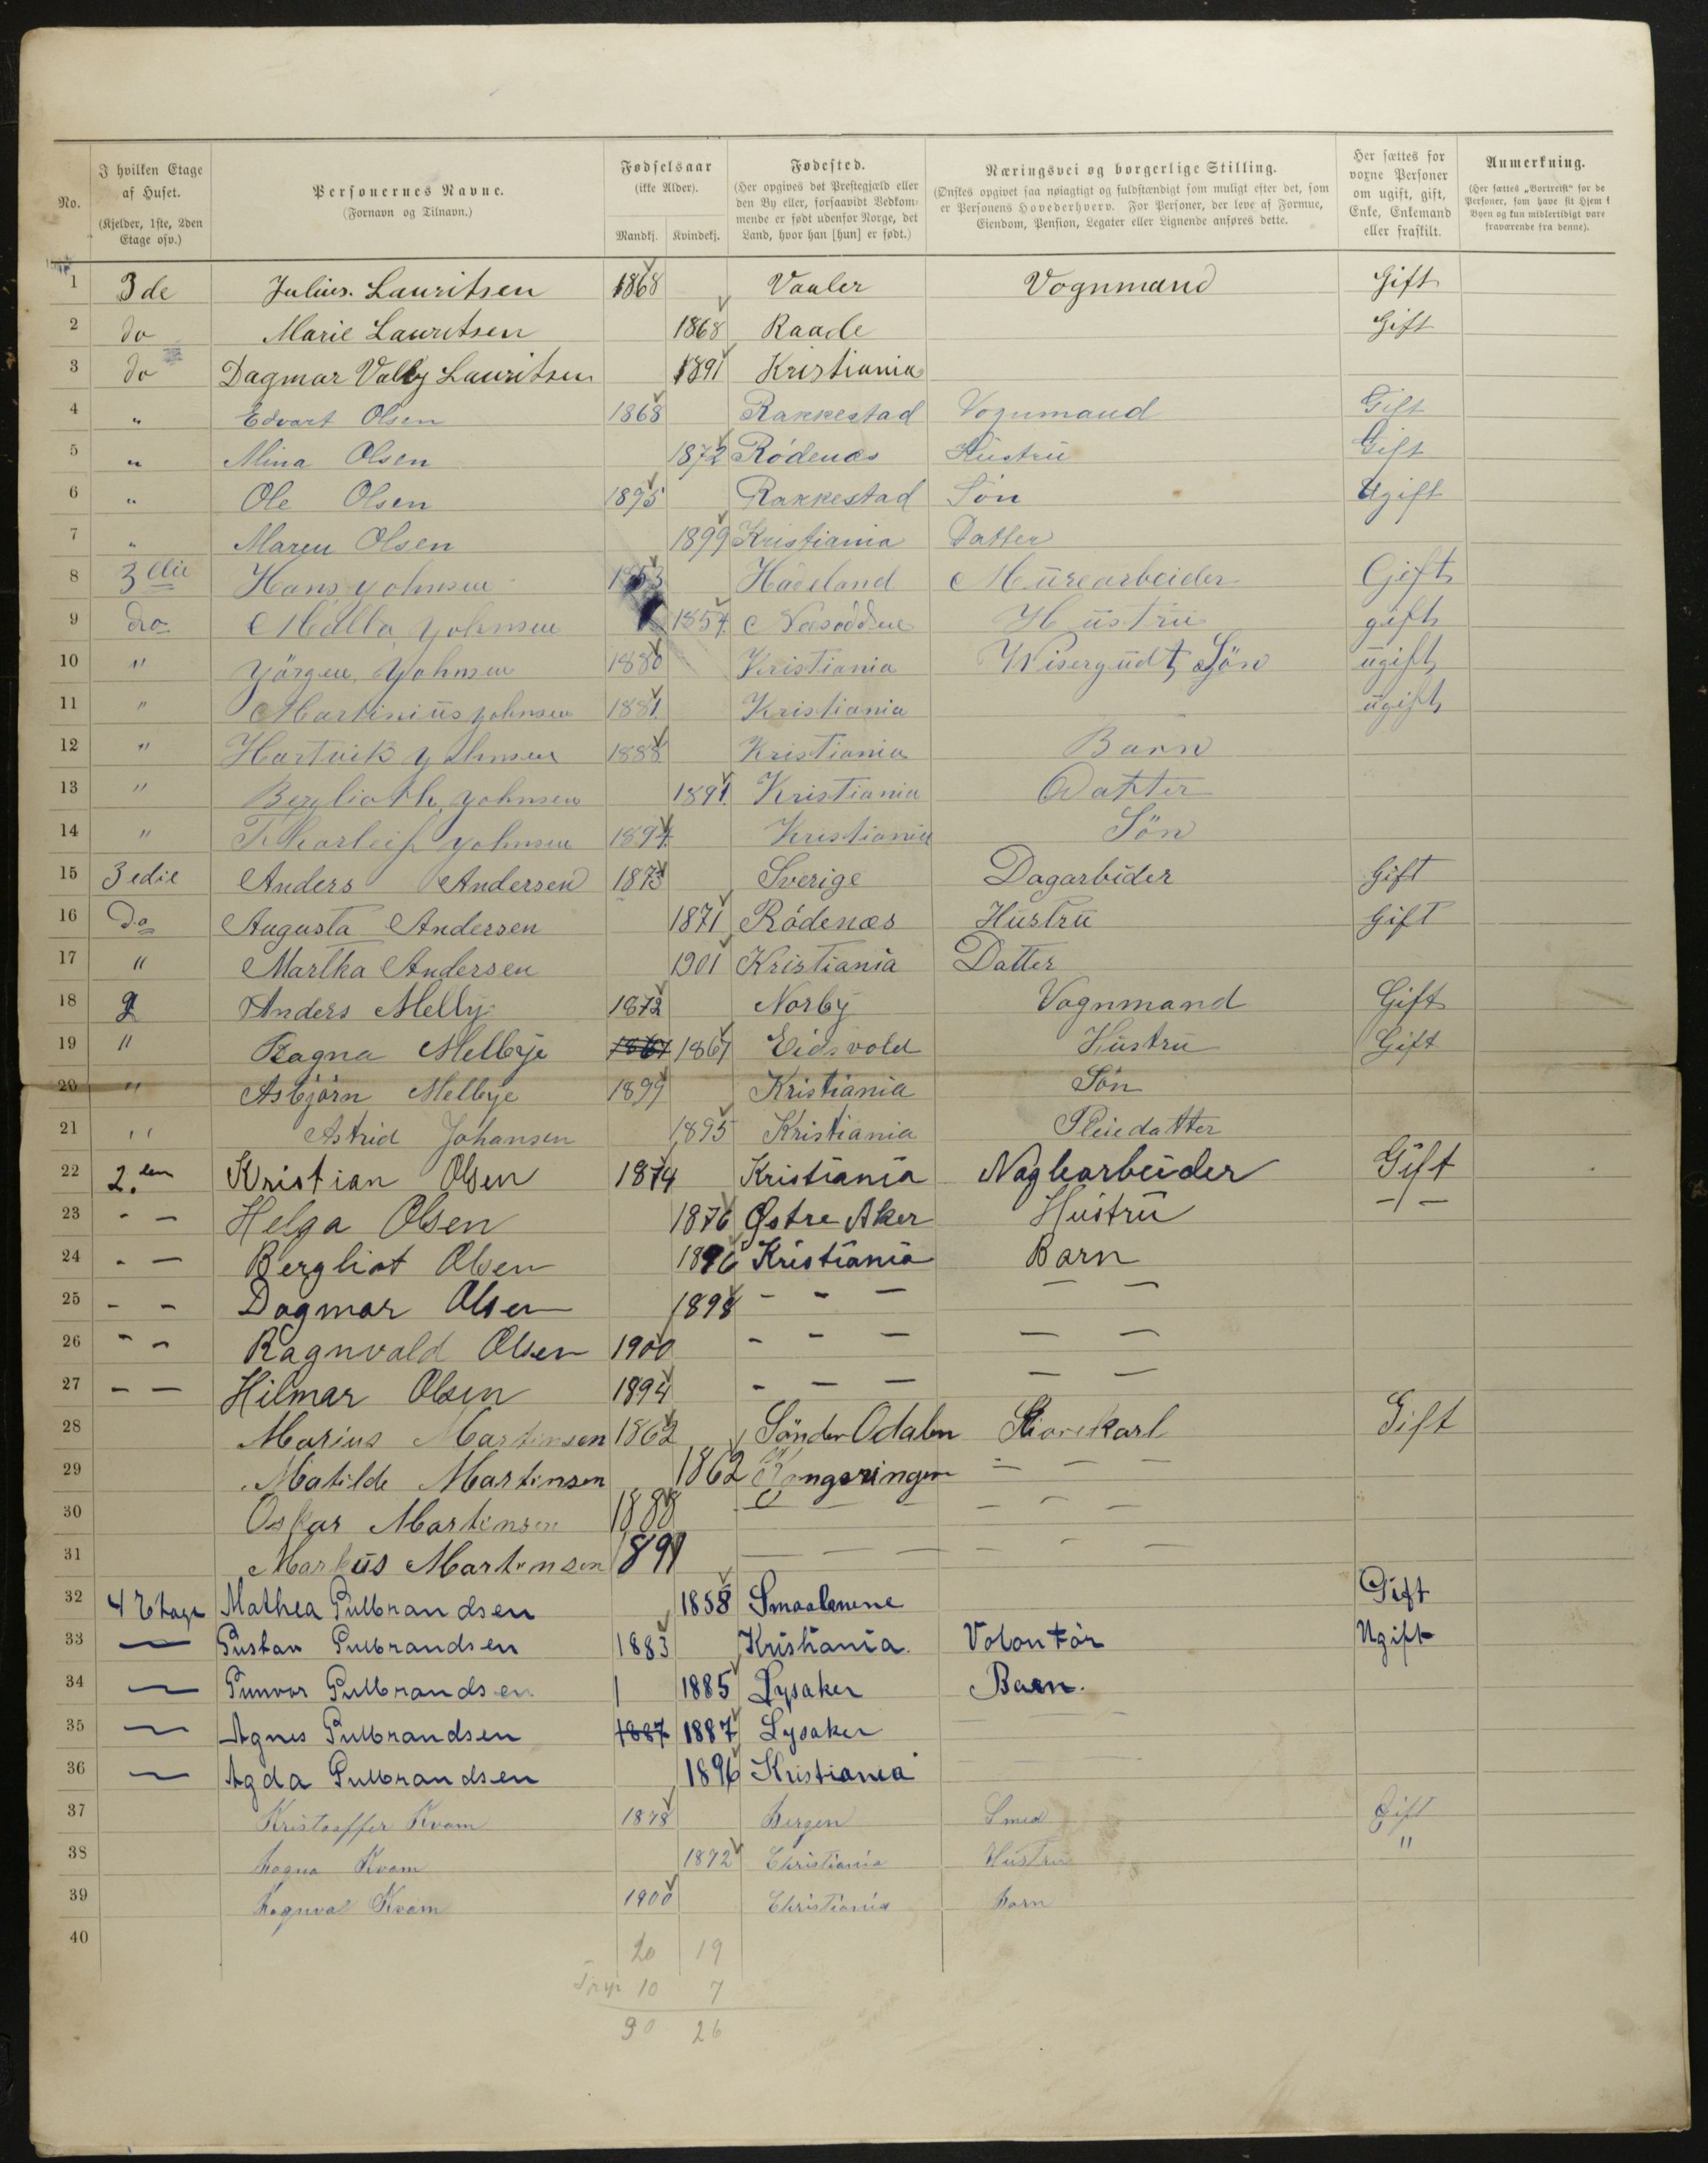 No. I hvilken Etage af Huset. (Kjelder, 1ste, 2den Etage osv.) Personernes Navne. (Fornavn og Tilnavn.) Fødselsaar (ikke Alder). Mandkj. Kvindekj. Fødested. (Her opgives det Prestegjæld eller den By eller, forsaavidt Vedkommende er født udenfor Norge, det Land, hvor han [hun] er født.) Næringsvei og borgerlige Stilling. (Ønskes opgivet saa nøiagtigt og fuldstændigt som muligt efter det, som er Personens Hovederhverv. For Personer, der leve af Formue, Eiendom, Pension, Legater eller Lignende anføres dette. Her sættes for voxne Personer om ugift, gift, Enke, Enkemand eller fraskilt. Anmerkning. (Her sættes „Bortreist“ for de Personer, som have sit Hjem i Byen og kun midlertidigt være fraværende fra denne).
1 3de Julius. Lauritsen 1868 Vaaler Vognmand Gift
2 do Marie Lauritsen 1868 Raade Gift
3 do Dagmar Valby Lauritsen 1891 Kristiania
4 " Edvart Olsen 1868 Rakkestad Vognmand Gift
5 " Mina Olsen 1872 Rödenæs Hustru Gift
6 " Ole Olsen 1895 Rakkestad Sön Ugift
7 " Maren Olsen 1899 Kristiania Datter
8 3die Hans Johnsen 1853 Hadeland Murearbeider Gift
9 do Malla Johnsen 1854 Næsodden Hustru gift
10 " Jörgen Johnsen 1880 Kristiania Wisergudt, Sön ugift
11 " Martinius Johnsen 1881 Kristiania ugift
12 " Hartvik Johnsen 1888 Kristiania Barn
13 " Berglioth Johnsen 1891 Kristiania Datter
14 " Thorleif Johnsen 1894 Kristiania Sön
15 3edie Anders Andersen 1873 Sverige Dagarbider Gift
16 Do Augusta Andersen 1871 Rödenæs Hustru Gift
17 " Martha Andersen 1901 Kristiania Datter
18 2 Anders Melby 1872 Norby Vognmand Gift
19 " Ragna Melbye 1867 1867 Eidsvold Hustru Gift
20 " Asbjörn Melbye 1899 Kristiania Sön
21 " Astrid Johansen 1895 Kristiania Pleiedatter
22 2.den Kristian Olsen 1874 Kristiania Naglearbeider Gift
23 - - Helga Olsen 1876 Østre Aker Hustru - -
24 - - Bergliot Olsen 1896 Kristiania Barn
25 - - Dagmar Olsen 1898 - - - - -
26 - - Ragnvald Olsen 1900 - - - - -
27 - - Hilmar Olsen 1894 - - - - -
28 Marius Martinsen 1862 Sönder Odalen Gift
29 Matilde Martinsen 1862 Kongsvinger - - -
30 Oskar Martinsen 1888 - - - - - -
31 Markus Martinsen 1891 - - - - - -
32 4 Etage Mathea Gulbrandsen 1858 Smaalenene Gift
33 — Gustav Gulbrandsen 1883 Kristiania. Volontör Ugift
34 — Gunvor Gulbrandsen 1885 Lysaker Barn.
35 — Agnes Gulbrandsen 1887 1887 Lysaker - - -
36 — Agda Gulbrandsen 1896 Kristiania - - -
37 Kristoffer Kvam 1878 Bergen Smed Gift
38 Ragna Kvam 1872 Christiania Hustru "
39 Ragnval Kvam 1900 Christiania Barn
40
20 19
10 7
30 26